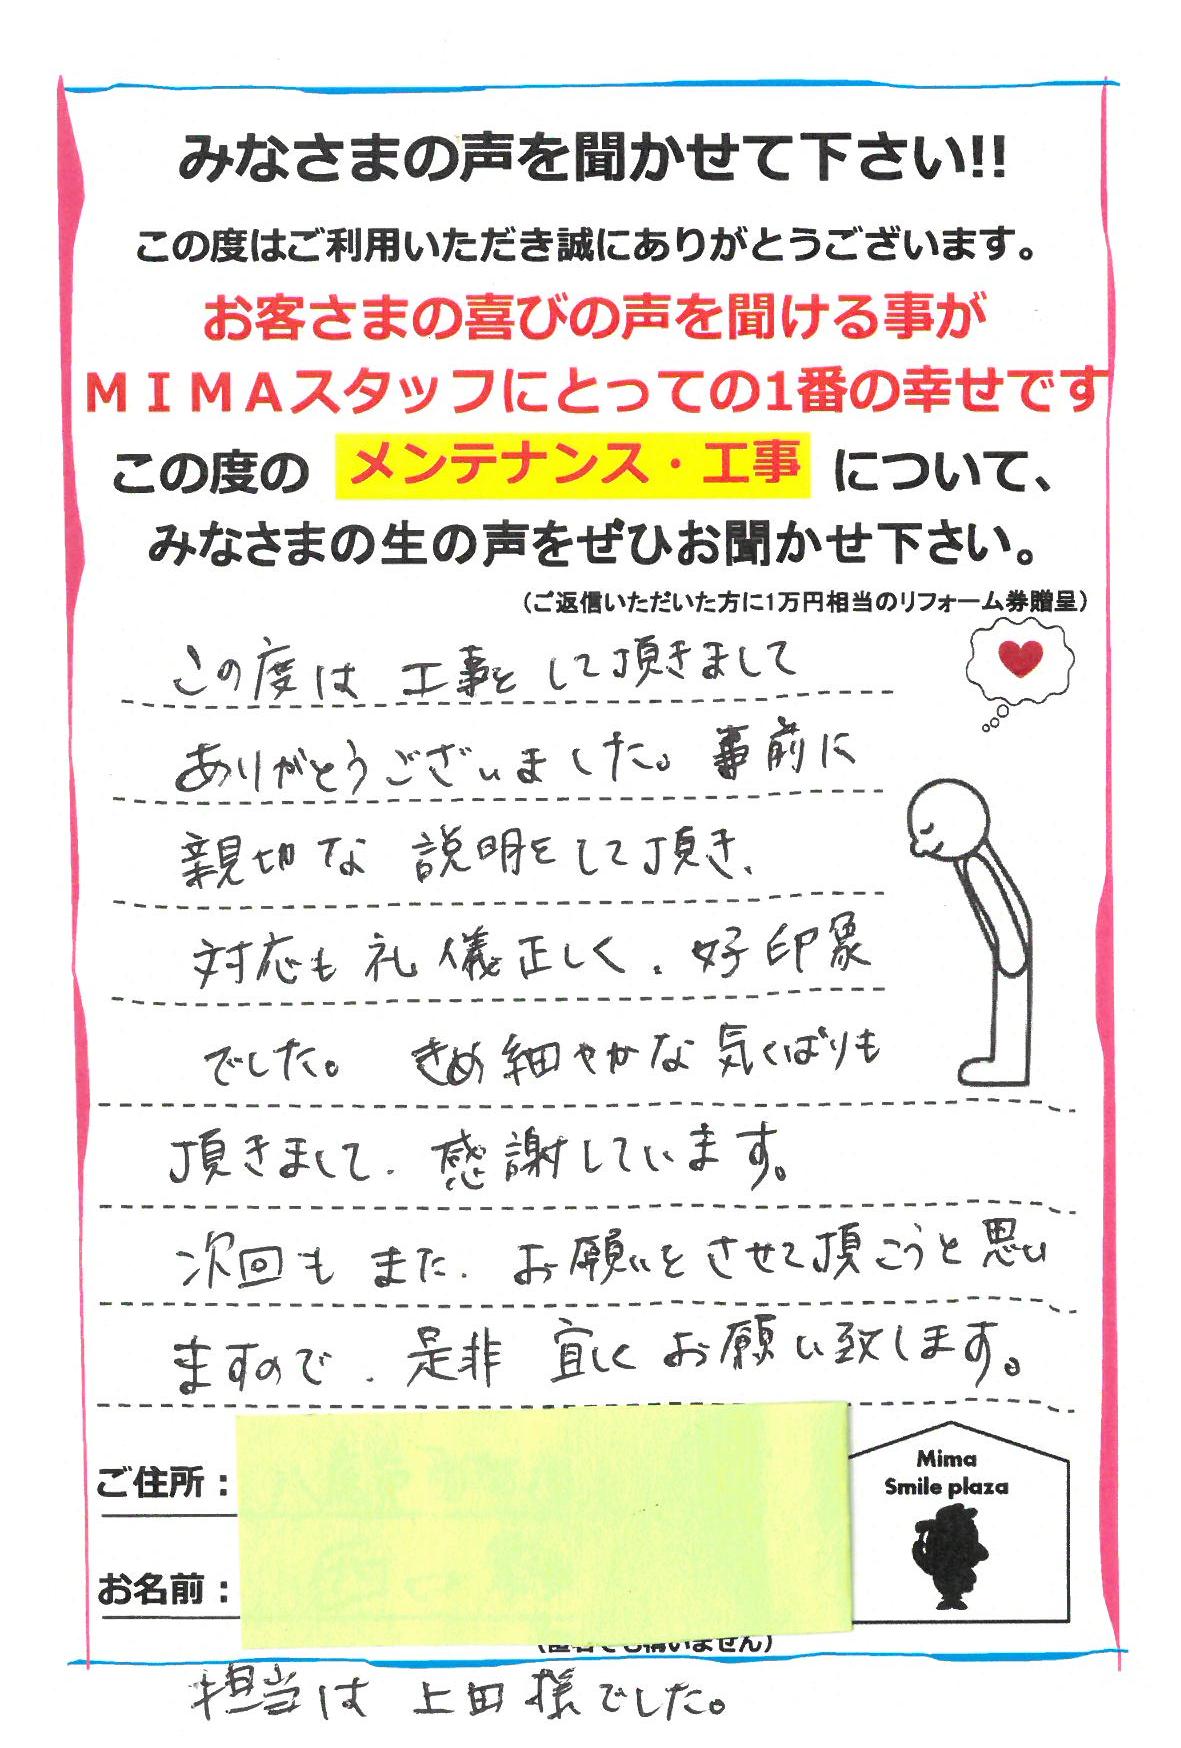 みなさまの声を聞かせて下さい!!
この度はご利用いただき誠にありがとうございます。
お客さまの喜びの声を聞ける事が
ＭＩＭＡスタッフにとっての1番の幸せです
この度の メンテナンス・工事 について、
みなさまの生の声をぜひお聞かせ下さい。
（ご返信いただいた方に1万円相当のリフォーム券贈呈）
この度は 工事を して頂きまして
ありがとうございました。事前に
親切な 説明をして頂き、
対応も礼儀正しく、好印象
でした。 きめ細やかな気くばりも
頂きまして、感謝しています。
次回もまた、お願いをさせて頂こうと思い
ますので、是非 宜しくお願い致します。
Mima
Smile plaza
ご住所：
お名前：
（匿名でも構いません）
担当は 上田様でした。